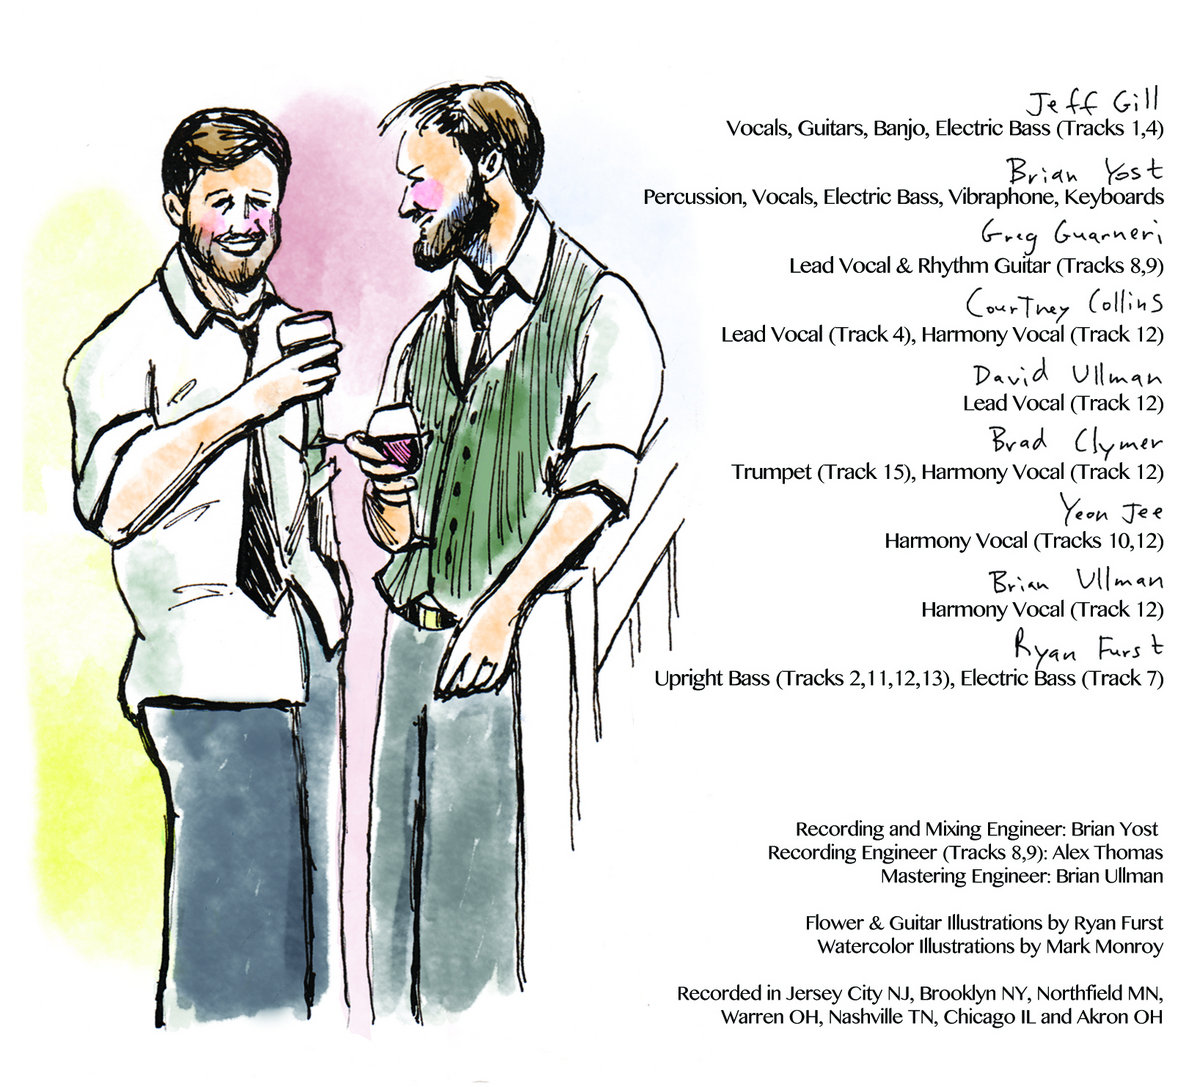 Jeff Gill
Vocals, Guitars, Banjo, Electric Bass (Tracks 1,4)
Brian Yost
Percussion, Vocals, Electric Bass, Vibraphone, Keyboards
Greg Guarneri
Lead Vocal & Rhythm Guitar (Tracks 8,9)
Courtney Collins
Lead Vocal (Track 4), Harmony Vocal (Track 12)
David Ullman
Lead Vocal (Track 12)
Brad Clymer
Trumpet (Track 15), Harmony Vocal (Track 12)
Yeon Jee
Harmony Vocal (Tracks 10,12)
Brian Ullman
Harmony Vocal (Track 12)
Ryan Furst
Upright Bass (Tracks 2,11,12,13), Electric Bass (Track 7)
Recording and Mixing Engineer: Brian Yost
Recording Engineer (Tracks 8,9): Alex Thomas
Mastering Engineer: Brian Ullman
Flower & Guitar Illustrations by Ryan Furst
Watercolor Illustrations by Mark Monroy
Recorded in Jersey City NJ, Brooklyn NY, Northfield MN,
Warren OH, Nashville TN, Chicago IL and Akron OH